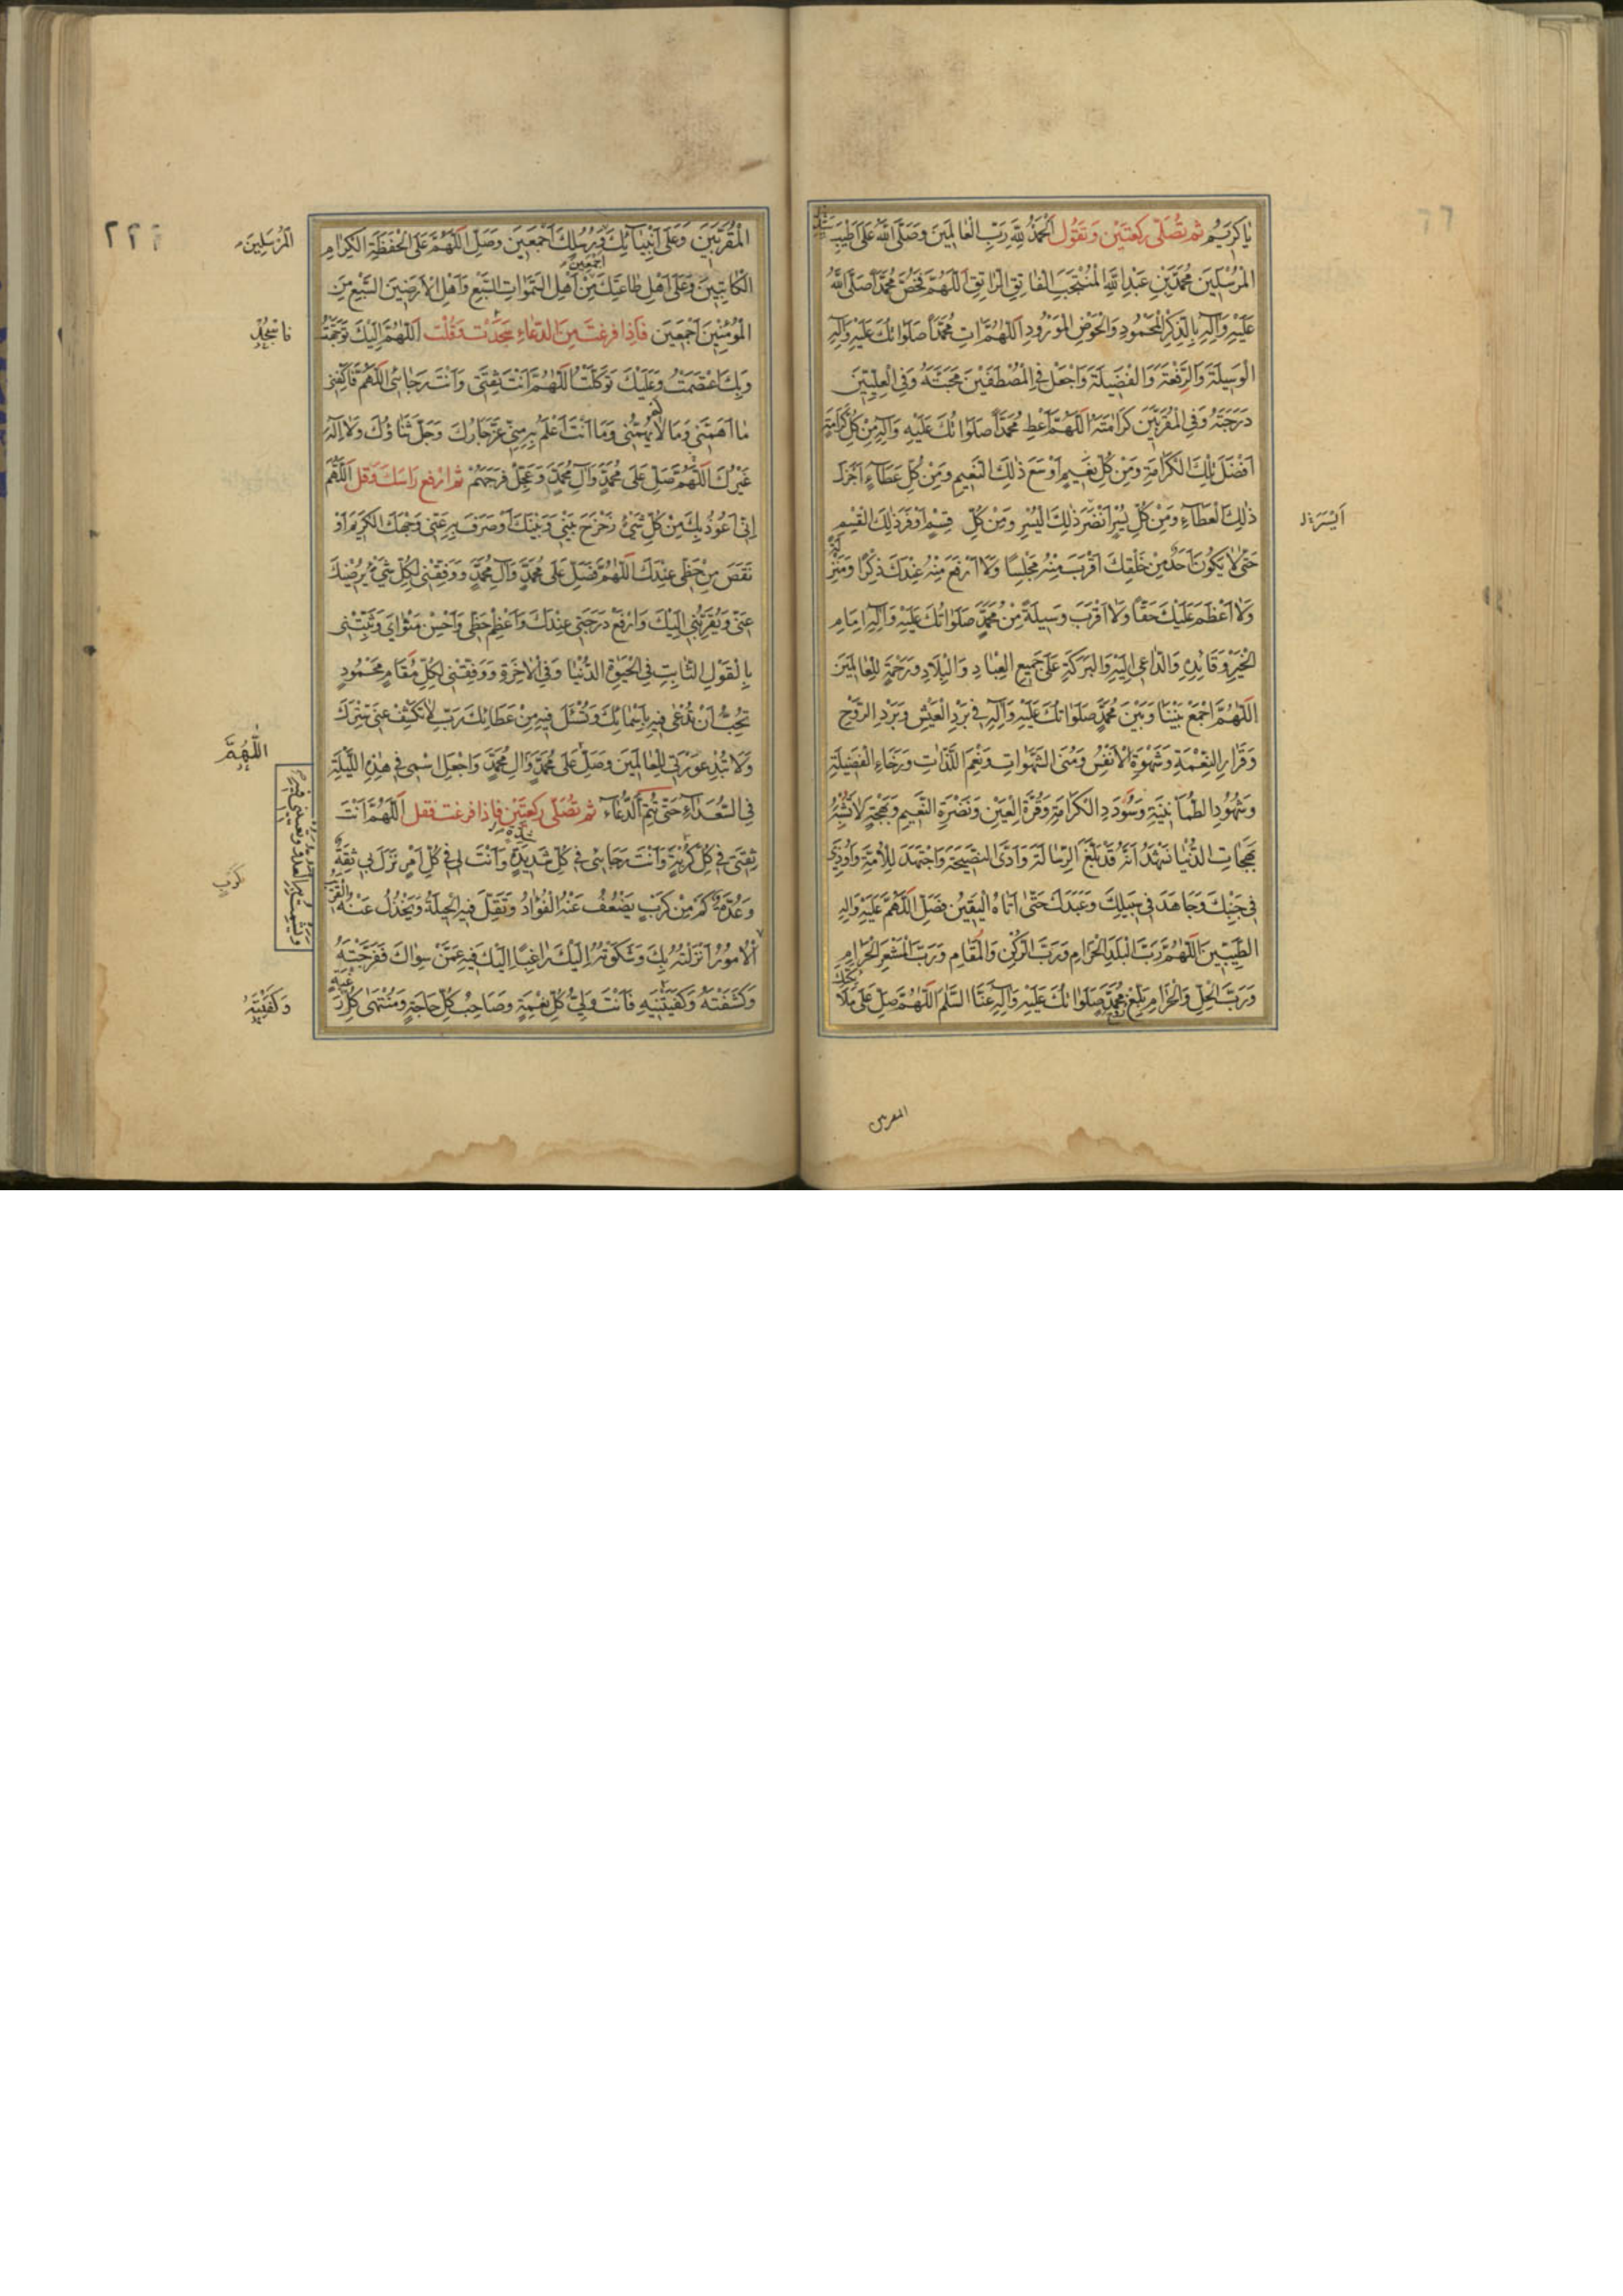 يٰا كَرِيمُ ثم تصلّى ركعتين وَتَقُول اَلْحَمْدُ لِلّهِ رَبِّ الْعٰالَمِينَ وَصَلَّى اللّهُ عَلىٰ اَطْيَبِ
الْمُرْسَلِينَ مُحَمَّدِ بْنِ عَبْدِ اللّهِ الْمُنْتَجَبِ الْفٰاتِقِ الرّٰاتِقِ اَللّهُمَّ فَخُصَّ مُحَمَّدًا صَلَّى اللّهُ
عَلَيْهِ وَآلِهِ بِالذِّكْرِ الْمَحْمُودِ وَالْحَوْضِ الْمَوْرُودِ اَللّهُمَّ اٰتِ مُحَمَّدًا صَلَوٰاتُكَ عَلَيْهِ وَآلِهِ
الْوَسِيلَةَ وَالرِّفْعَةَ وَالْفَضِيلَةَ وَاجْعَلْ فِي الْمُصْطَفَيْنَ مَحَبَّتَهُ وَفِي الْعِلِّيِّينَ
دَرَجَتَهُ وَفِي الْمُقَرَّبِينَ كَرٰامَتَهُ اَللّهُمَّ اَعْطِ مُحَمَّدًا صَلَوٰاتُكَ عَلَيْهِ وَآلِهِ مِنْ كُلِّ كَرٰامَةٍ
اَفْضَلَ تِلْكَ الْكَرٰامَةِ وَمِنْ كُلِّ نَعِيمٍ اَوْسَعَ ذٰلِكَ النَّعِيمِ وَمِنْ كُلِّ عَطٰاءٍ اَجْزَلَ
ذٰلِكَ الْعَطٰاءِ وَمِنْ كُلِّ يُسْرٍ اَنْضَرَ ذٰلِكَ الْيُسْرِ وَمِنْ كُلِّ قِسْمٍ اَوْفَرَ ذٰلِكَ الْقِسْمِ
اَيْسَرَ
حَتّىٰ لاٰ يَكُونَ اَحَدٌ مِنْ خَلْقِكَ اَقْرَبَ مِنْهُ مَجْلِسًا وَلاٰ اَرْفَعَ مِنْهُ عِنْدَكَ ذِكْرًا وَمَنْزِلَةً
وَلاٰ اَعْظَمَ عَلَيْكَ حَقًّا وَلاٰ اَقْرَبَ وَسِيلَةً مِنْ مُحَمَّدٍ صَلَوٰاتُكَ عَلَيْهِ وَآلِهِ اِمٰامِ
الْخَيْرِ وَقٰائِدِهِ وَالدّٰاعِي اِلَيْهِ وَالْبَرَكَةِ عَلىٰ جَمِيعِ الْعِبٰادِ وَالْبِلاٰدِ وَرَحْمَةٍ لِلْعٰالَمِينَ
اَللّهُمَّ اجْمَعْ بَيْنَنٰا وَبَيْنَ مُحَمَّدٍ صَلَوٰاتُكَ عَلَيْهِ وَآلِهِ فِي بَرْدِ الْعَيْشِ وَبَرْدِ الرَّوْحِ
وَقَرٰارِ النِّعْمَةِ وَشَهْوَةِ الْاَنْفُسِ وَمُنَى الشَّهَوٰاتِ وَنِعَمِ اللَّذّٰاتِ وَرَخٰاءِ الْفَضِيلَةِ
وَشُهُودِ الطُّمَأْنِينَةِ وَسُؤْدَدِ الْكَرٰامَةِ وَقُرَّةِ الْعَيْنِ وَنَضْرَةِ النَّعِيمِ وَبَهْجَةٍ لاٰ تُشْبِهُ
بَهَجٰاتِ الدُّنْيٰا نَشْهَدُ اَنَّهُ قَدْ بَلَّغَ الرِّسٰالَةَ وَاَدَّى النَّصِيحَةَ وَاجْتَهَدَ لِلْاُمَّةِ وَاُوذِيَ
فِي جَنْبِكَ وَجٰاهَدَ فِي سَبِيلِكَ وَعَبَدَكَ حَتّىٰ اَتٰاهُ الْيَقِينُ فَصَلِّ اللّهُمَّ عَلَيْهِ وَآلِهِ
الطَّيِّبِينَ اَللّهُمَّ رَبَّ الْبَلَدِ الْحَرٰامِ وَرَبَّ الرُّكْنِ وَالْمَقٰامِ وَرَبَّ الْمَشْعَرِ الْحَرٰامِ
وَرَبَّ الْحِلِّ وَالْحَرٰامِ بَلِّغْ رُوحَ مُحَمَّدٍ صَلَوٰاتُكَ عَلَيْهِ وَآلِهِ عَنَّا السَّلٰمَ اَللّهُمَّ صَلِّ عَلىٰ مَلاٰئِكَتِكَ
المقربين
٢٢٦
الْمُقَرَّبِينَ وَعَلىٰ اَنْبِيٰائِكَ وَرُسُلِكَ اَجْمَعِينَ وَصَلِّ اللّهُمَّ عَلَى الْحَفَظَةِ الْكِرٰامِ
اَلْمُرْسَلِينَ
الْكٰاتِبِينَ وَعَلىٰ اَهْلِ طٰاعَتِكَ مِنْ اَهْلِ السَّمٰوٰاتِ السَّبْعِ وَاَهْلِ الْاَرَضِينَ السَّبْعِ مِنَ
اَجْمَعِينَ
الْمُؤْمِنِينَ اَجْمَعِينَ فَاِذا فرغت مِن الدّعاءِ سَجَدْت وَقُلْت اَللّهُمَّ اِلَيْكَ تَوَجَّهْتُ
فاسْجُدْ
وَبِكَ اعْتَصَمْتُ وَعَلَيْكَ تَوَكَّلْتُ اَللّهُمَّ اَنْتَ ثِقَتِي وَاَنْتَ رَجٰائِي اَللّهُمَّ فَاكْفِنِي
مٰا اَهَمَّنِي وَمٰا لاٰ يُهِمُّنِي وَمٰا اَنْتَ اَعْلَمُ بِهِ مِنِّي عَزَّ جٰارُكَ وَجَلَّ ثَنٰاؤُكَ وَلاٰ اِلٰهَ
غَيْرُكَ اَللّهُمَّ صَلِّ عَلىٰ مُحَمَّدٍ وَآلِ مُحَمَّدٍ وَعَجِّلْ فَرَجَهُمْ ثم ارْفع رَاسَكَ وَقل اَللّهُمَّ
اِنِّي اَعُوذُ بِكَ مِنْ كُلِّ شَيْءٍ زَحْزَحَ بَيْنِي وَبَيْنَكَ اَوْ صَرَفَ بِهِ عَنِّي وَجْهَكَ الْكَرِيمَ اَوْ
نَقَصَ مِنْ حَظِّي عِنْدَكَ اَللّهُمَّ فَصَلِّ عَلىٰ مُحَمَّدٍ وَآلِ مُحَمَّدٍ وَوَفِّقْنِي لِكُلِّ شَيْءٍ يُرْضِيكَ
عَنِّي وَيُقَرِّبُنِي اِلَيْكَ وَارْفَعْ دَرَجَتِي عِنْدَكَ وَاَعْظِمْ حَظِّي وَاَحْسِنْ مَثْوٰايَ وَثَبِّتْنِي
بِالْقَوْلِ الثّٰابِتِ فِي الْحَيٰوةِ الدُّنْيٰا وَفِي الْاٰخِرَةِ وَوَفِّقْنِي لِكُلِّ مَقٰامٍ مَحْمُودٍ
تُحِبُّ اَنْ تُدْعىٰ فِيهِ بِاَسْمٰائِكَ وَتُسْئَلَ فِيهِ مِنْ عَطٰائِكَ رَبِّ لاٰ تَكْشِفْ عَنِّي سِتْرَكَ
وَلاٰ تُبْدِ عَوْرَتِي لِلْعٰالَمِينَ وَصَلِّ عَلىٰ مُحَمَّدٍ وَآلِ مُحَمَّدٍ وَاجْعَلِ اسْمِي فِي هٰذِهِ اللَّيْلَةِ
اَللّٰهُمَّ
فِي السُّعَدٰاءِ حَتّىٰ تُتِمَّ الدُّعٰاءَ ثم تصَلّى ركعتين فاِذا فرغت فقل اَللّهُمَّ اَنْتَ
ثِقَتِي فِي كُلِّ كُرْبَةٍ وَاَنْتَ رَجٰائِي فِي كُلِّ شَدِيدَةٍ وَاَنْتَ لِي فِي كُلِّ اَمْرٍ نَزَلَ بِي ثِقَةٌ
كَرْبٍ
وَعُدَّةٌ كَمْ مِنْ كَرْبٍ يَضْعُفُ عَنْهُ الْفُؤٰادُ وَتَقِلُّ فِيهِ الْحِيلَةُ وَيَخْذُلُ عَنْهُ الْقَرِيبُ
وَيَشْمَتُ بِهِ الْعَدُوُّ وَتُعْيِينِي فِيهِ
الْاُمُورُ اَنْزَلْتُهُ بِكَ وَشَكَوْتُهُ اِلَيْكَ رٰاغِبًا اِلَيْكَ فِيهِ عَمَّنْ سِوٰاكَ فَفَرَّجْتَهُ
وَكَشَفْتَهُ وَكَفَيْتَنِيهِ فَاَنْتَ وَلِيُّ كُلِّ نِعْمَةٍ وَصٰاحِبُ كُلِّ حٰاجَةٍ وَمُنْتَهىٰ كُلِّ رَغْبَةٍ
وَكَفَيْتَنِيهِ